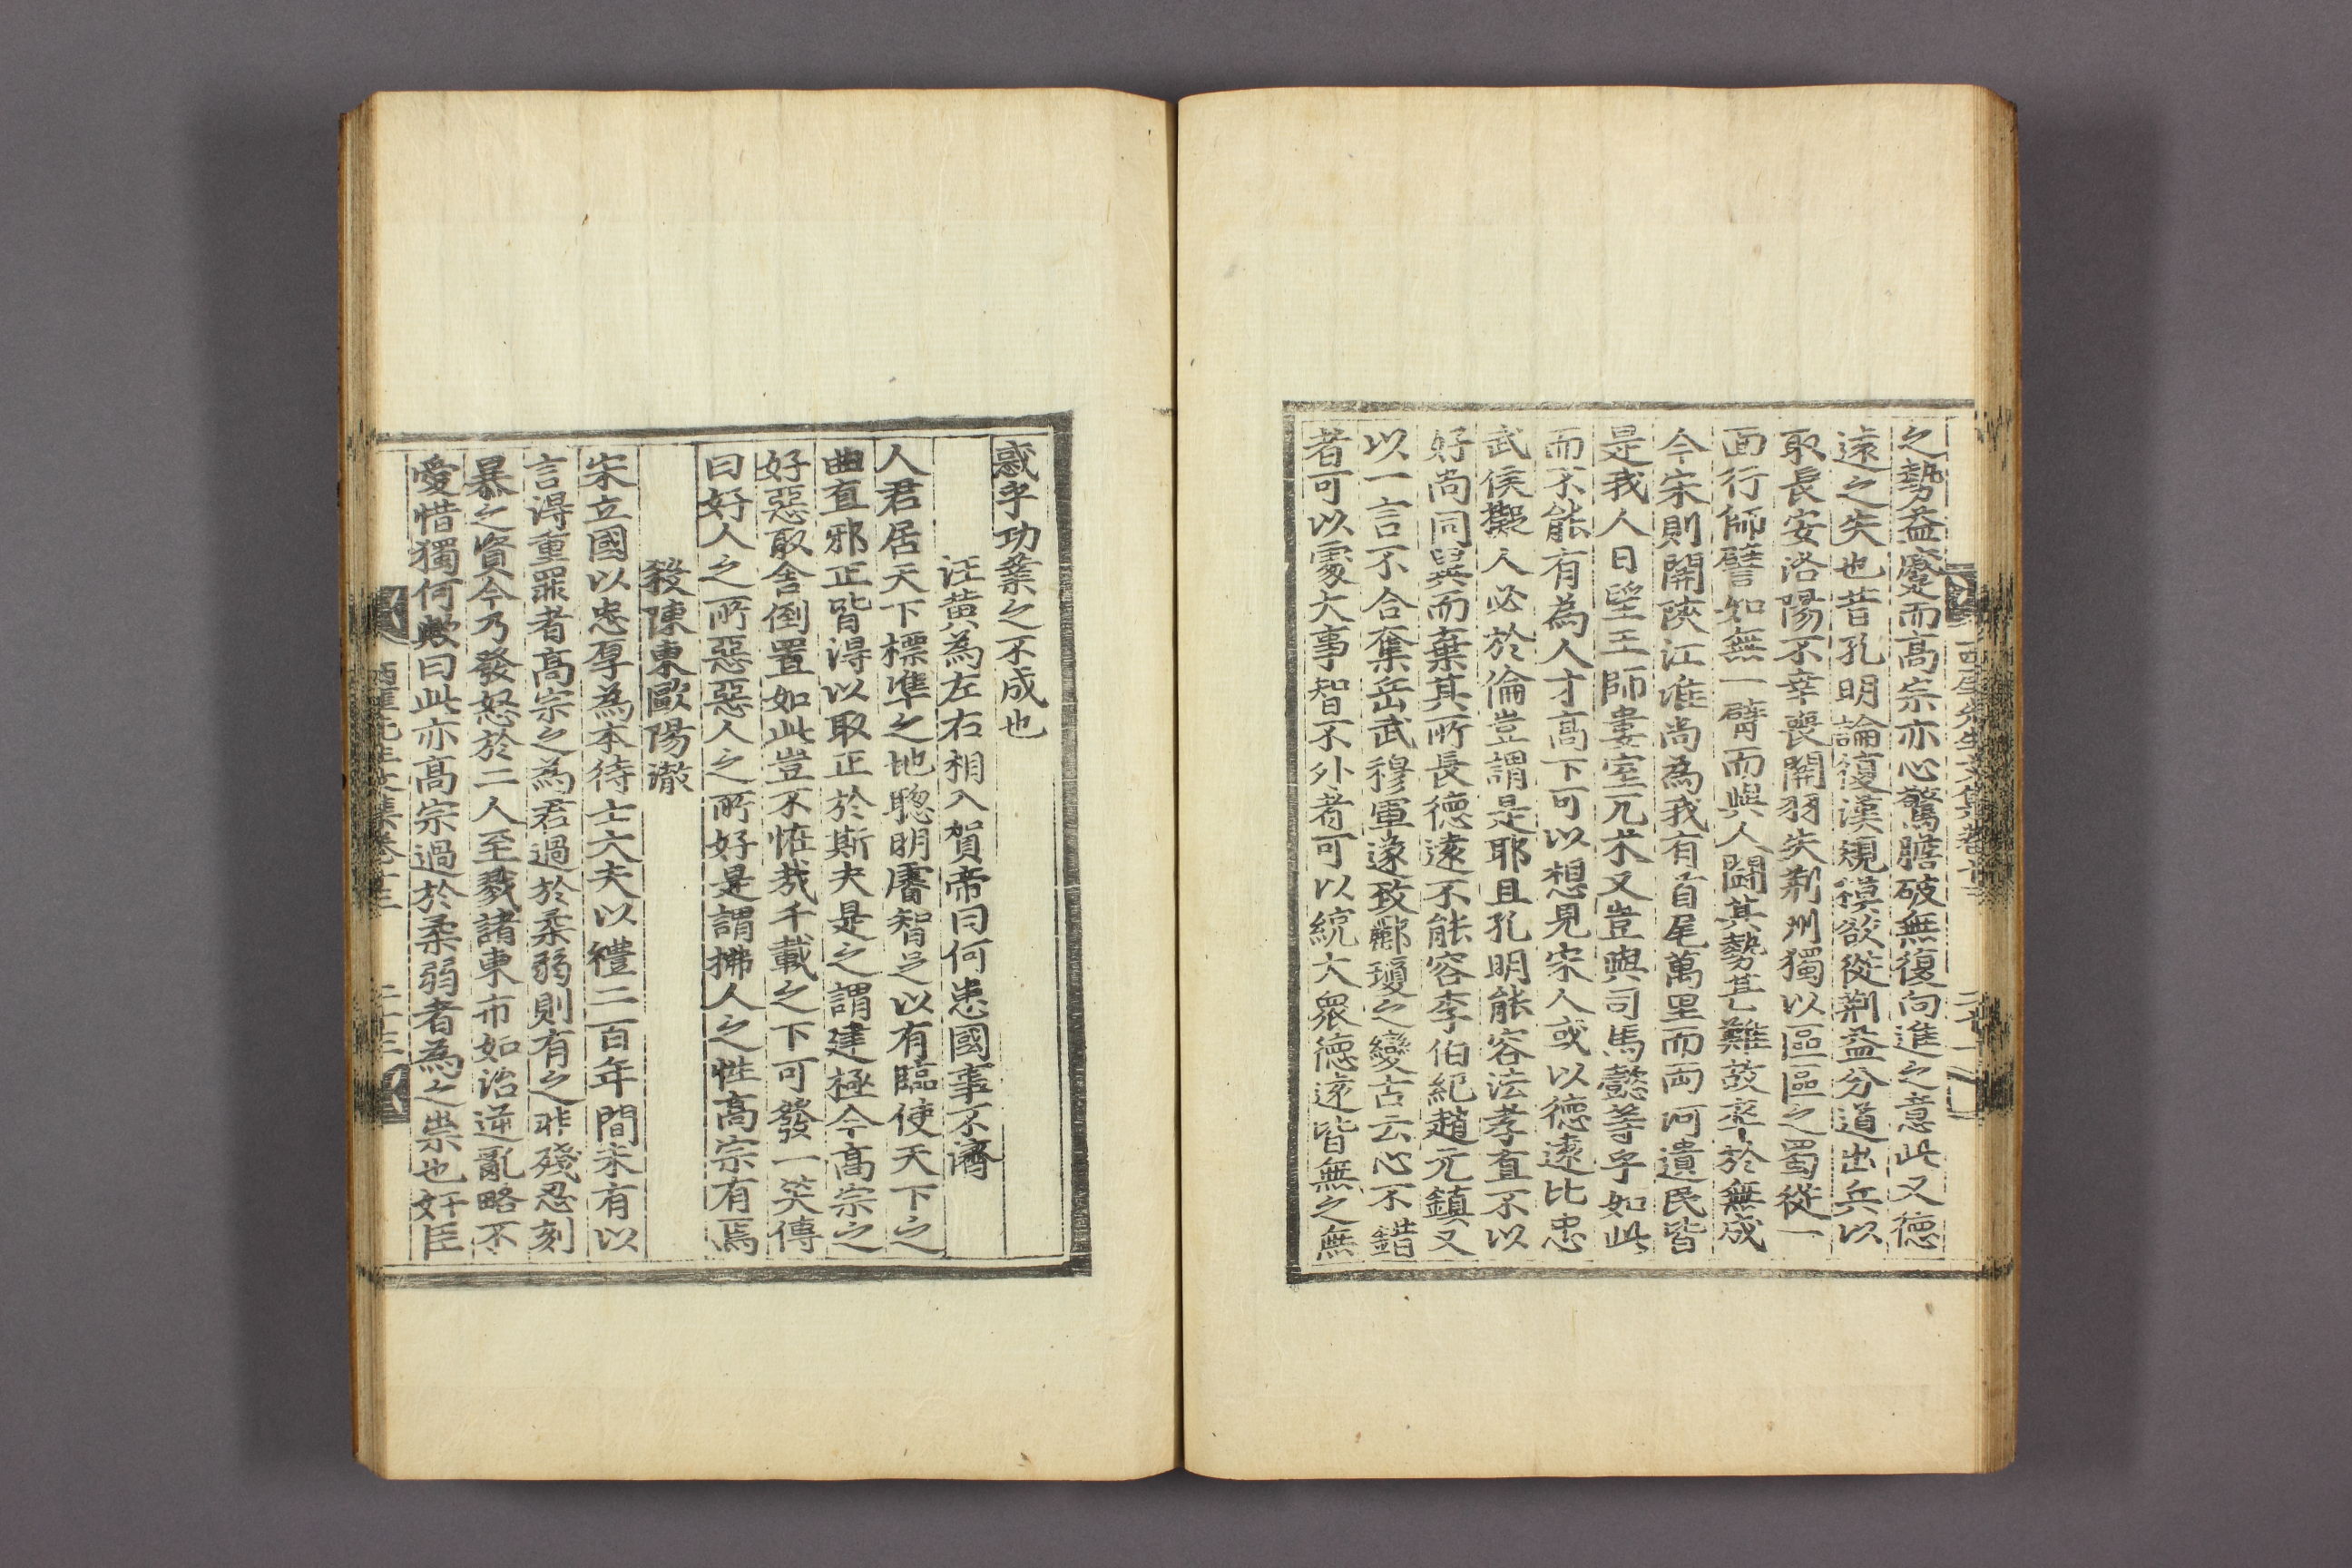 之勢益蹙而高宗亦心驚膽破無復向進之意此又德
遠之失也昔孔明論復漢規模欲從荊益分道出兵以
取長安洛陽不幸喪關羽失荊州獨以區區之蜀從一
面行師譬如無一臂而與人鬪其勢甚難故卒於無成
今宋則關陝江淮尚爲我有首尾萬里而両河遺民皆
是我人日望王師婁室兀朮又豈與司馬懿等乎如此
而不能有為人才高下可以想見宋人或以德遠比忠
武侯擬人必於倫豈謂是耶且孔明能容法孝直不以
好尚同異而棄其所長德遠不能容李伯紀趙元鎮又
以一言不合奪岳武穆軍遂致酈瓊之變古云心不錯
者可以處大事智不外者可以統大衆德遠皆無之無
惑乎功業之不成也
汪黃為左右相入賀帝曰何患國事不濟
人君居天下標準之地聰明睿智足以有臨使天下之
曲直邪正皆得以取正於斯夫是之謂建極今高宗之
好惡取舍倒置如此豈不恠㦲千載之下可發一笑傳
曰好人之所惡惡人之所好是謂拂人之性高宗有焉
殺陳東歐陽澈
宋立國以忠厚為本待士大夫以禮二百年間未有以
言得重罪者高宗之為君過於柔弱則有之非殘忍刻
暴之資今乃發怒於二人至戮諸東市如治逆亂略不
愛惜獨何歟曰此亦高宗過於柔弱者為之祟也奸臣
西厓先生文集卷十五 二十三